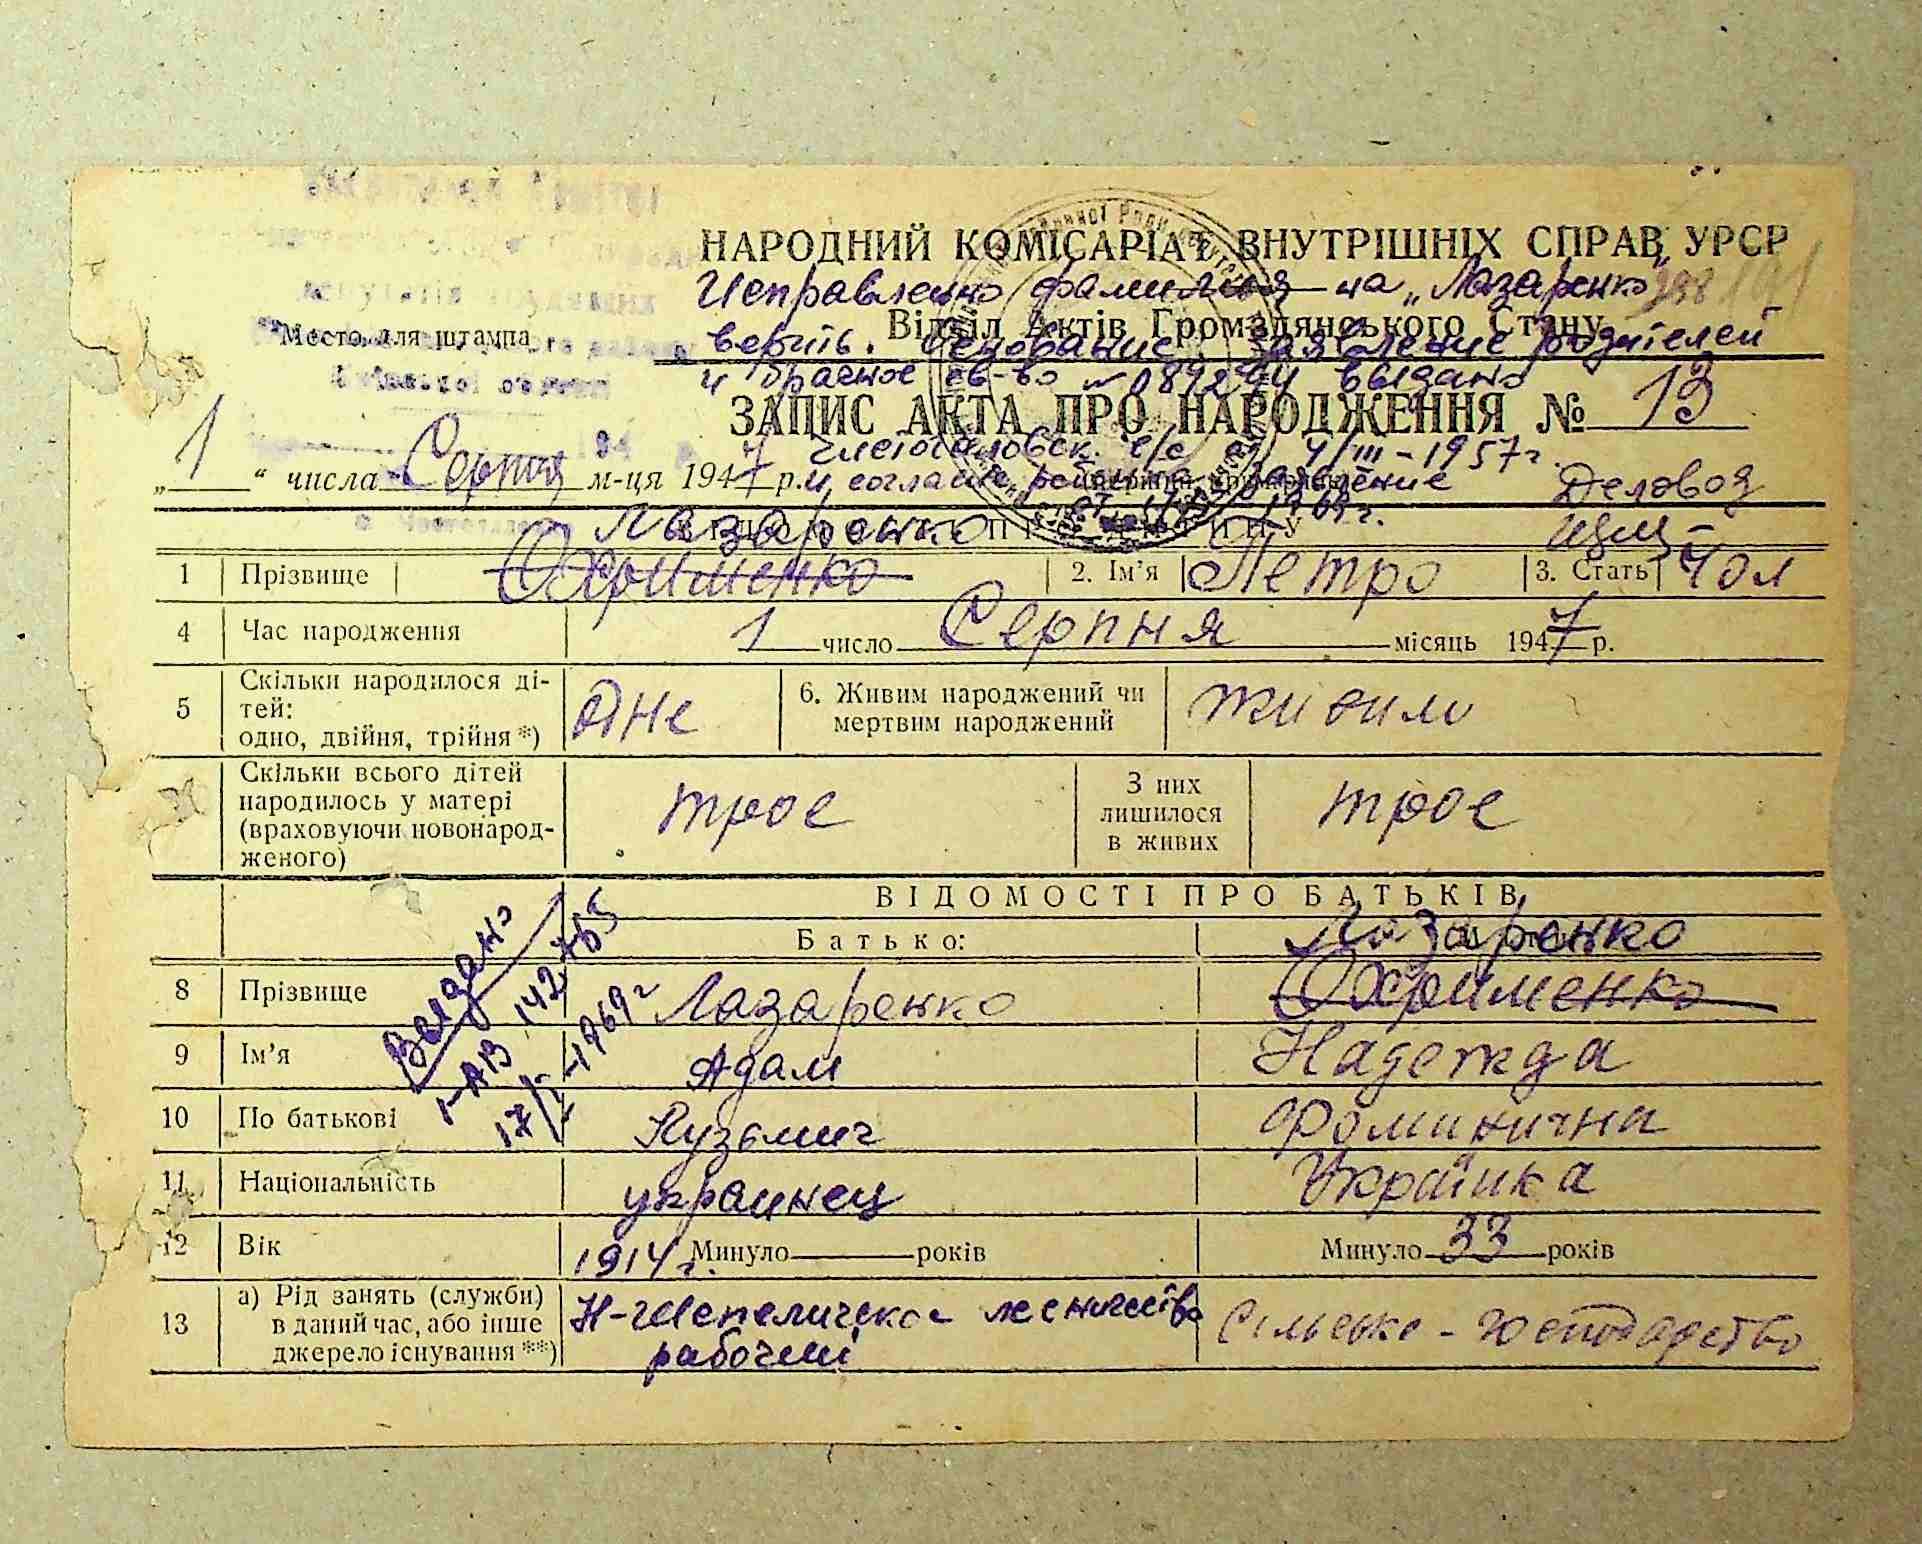 НАРОДНИЙ КОМІСАРІАТ ВНУТРІШНІХ СПРАВ УРСР
Исправлено фамилия на „Лазаренко"
Місто для штампа
Відділ Актів Громадянського Стану
верить. Основание: заявление родителей
и брачное св-во № выдано
ЗАПИС АКТА ПРО НАРОДЖЕННЯ № 13
с/с от 4/III-1957г.
„1" числа Серпня м-ця 1947 р.
и согласно заявление Деловод
Лазаренко
1 Прізвище Охрименко 2. Ім'я Петро 3. Стать Чол
4 Час народження 1 число Серпня місяць 1947 р.
5 Скільки народилося ді-
тей:
одно, двійня, трійня *) Дне 6. Живим народжений чи
мертвим народжений живим
Скільки всього дітей
народилось у матері
(враховуючи новонарод-
женого) трое З них
лишилося
в живих трое
ВІДОМОСТІ ПРО БАТЬКІВ
Батько: Лазаренко
8 Прізвище Лазаренко Охрименко
9 Ім'я Адам Надежда
10 По батькові Кузьмич Фоминична
11 Національність украинец Українка
12 Вік 1914 г. Минуло років Минуло 33 років
13 а) Рід занять (служби)
в даний час, або інше
джерело існування **) Н-Шепеличское лесничество
рабочий Сільське-господарство
Выдано
І-АВ 142765
17/І-1969г